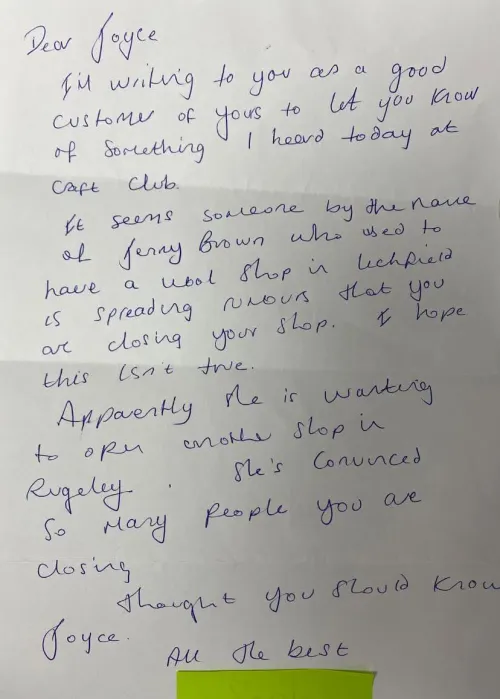 Dear Joyce
I'M writing to you as a good
customer of yours to let you know
of something I heard today at
Caft Club.
It seems someone by the name
of Jenny Brown who used to
have a wool shop in Lichfield
is spreading rumours that you
are closing your shop. I hope
this isn't true.
Apparently she is wanting
to open another shop in
Rugeley. She's convinced
so many people you are
closing
thought you should know
Joyce.
All the best